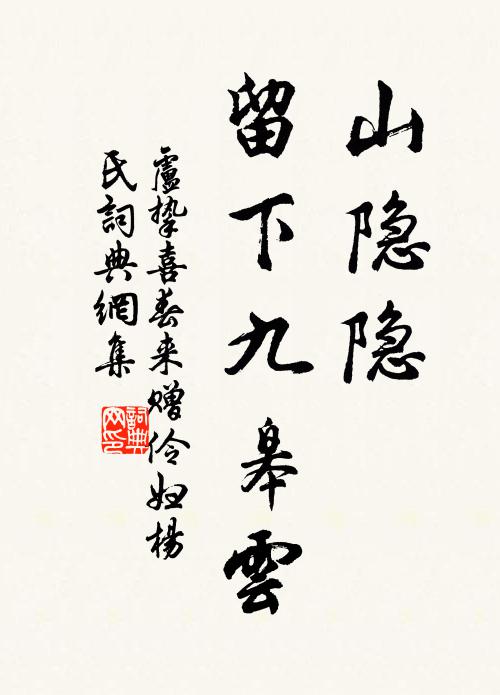 山隐隐
留下九皋雲
盧摯喜春来赠伶妇楊
氏詞典網集
詞典网印